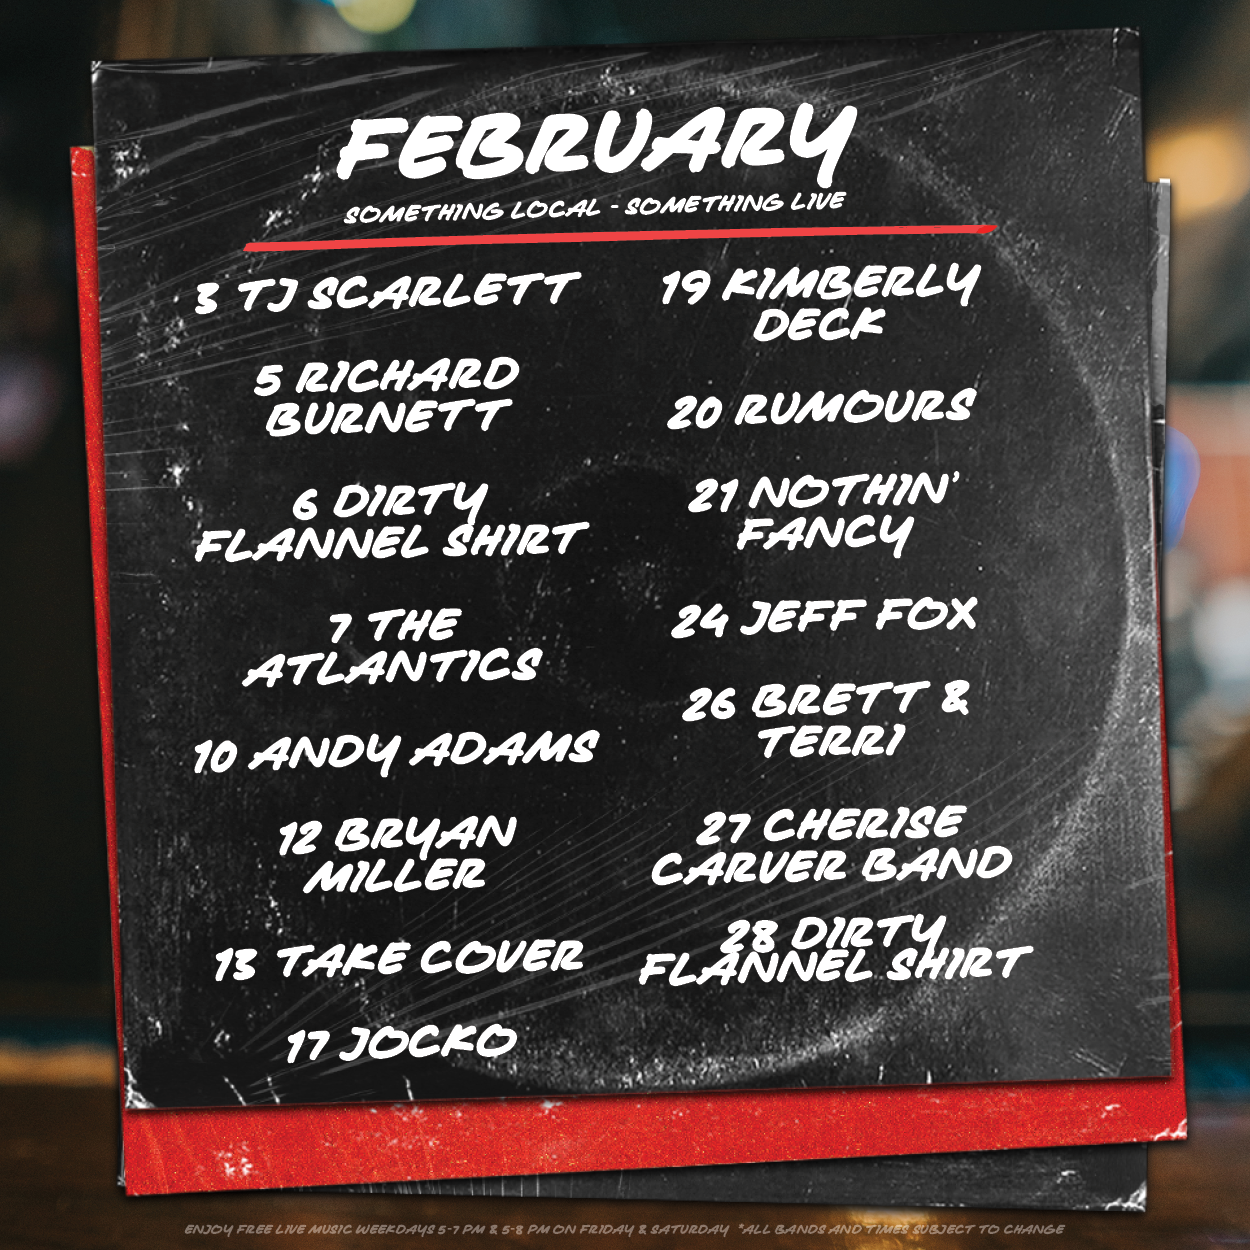 FEBRUARY
SOMETHING LOCAL - SOMETHING LIVE
3 TJ SCARLETT
5 RICHARD
BURNETT
6 DIRTY
FLANNEL SHIRT
7 THE
ATLANTICS
10 ANDY ADAMS
12 BRYAN
MILLER
13 TAKE COVER
17 JOCKO
19 KIMBERLY
DECK
20 RUMOURS
21 NOTHIN'
FANCY
24 JEFF FOX
26 BRETT &
TERRI
27 CHERISE
CARVER BAND
28 DIRTY
FLANNEL SHIRT
ENJOY FREE LIVE MUSIC WEEKDAYS 5-7 PM & 5-8 PM ON FRIDAY & SATURDAY *ALL BANDS AND TIMES SUBJECT TO CHANGE